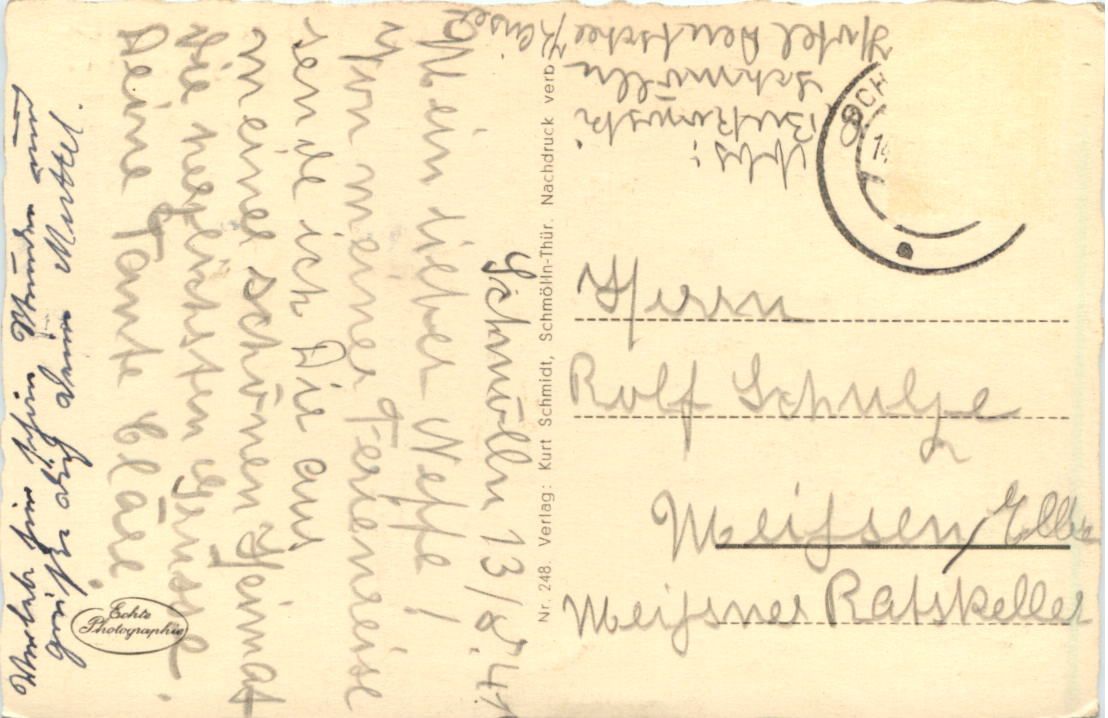 Schmölln 13/8.41
Mein lieber Neffe!
Von meiner Ferienreise
sende ich Dir aus
meiner schönen Heimat
die herzlichsten Grüsse.
Deine Tante Cläre.
grüßt dich deine Mutter.
Abs:
Schmölln
Hotel Deutscher Kaiser
Nr. 248. Verlag: Kurt Schmidt, Schmölln-Thür. Nachdruck verb.
Herrn
Rolf Schulze
Meissen/Elbe
Meissner Ratskeller
Echte
Photographie
SCH
14